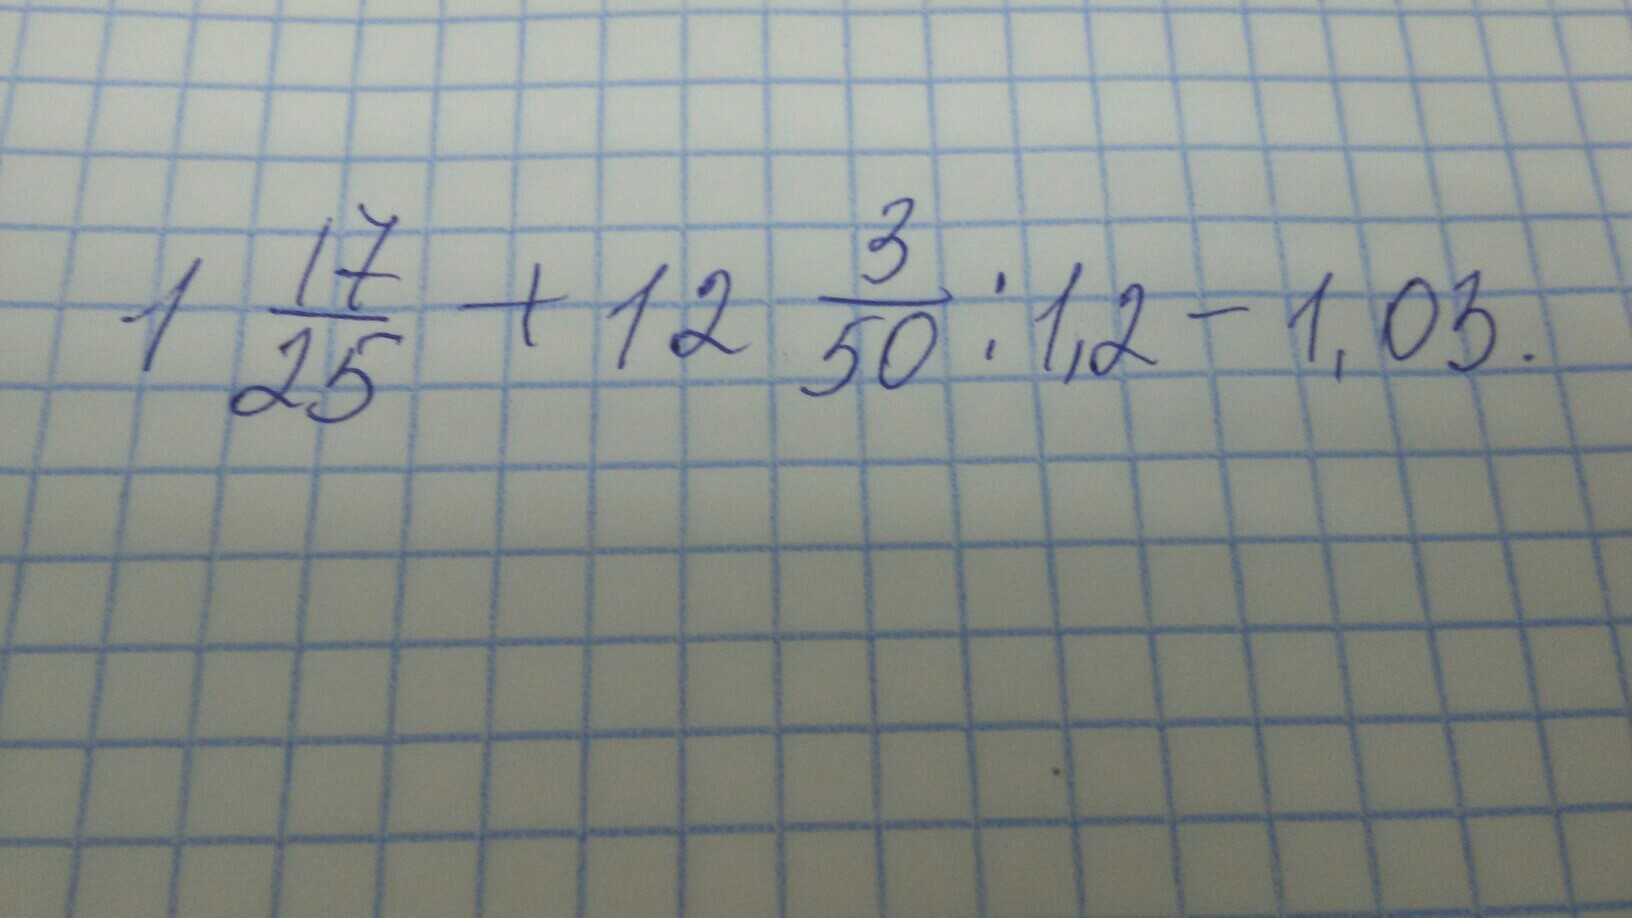 1 17/25 + 12 3/50 : 1,2 - 1,03.